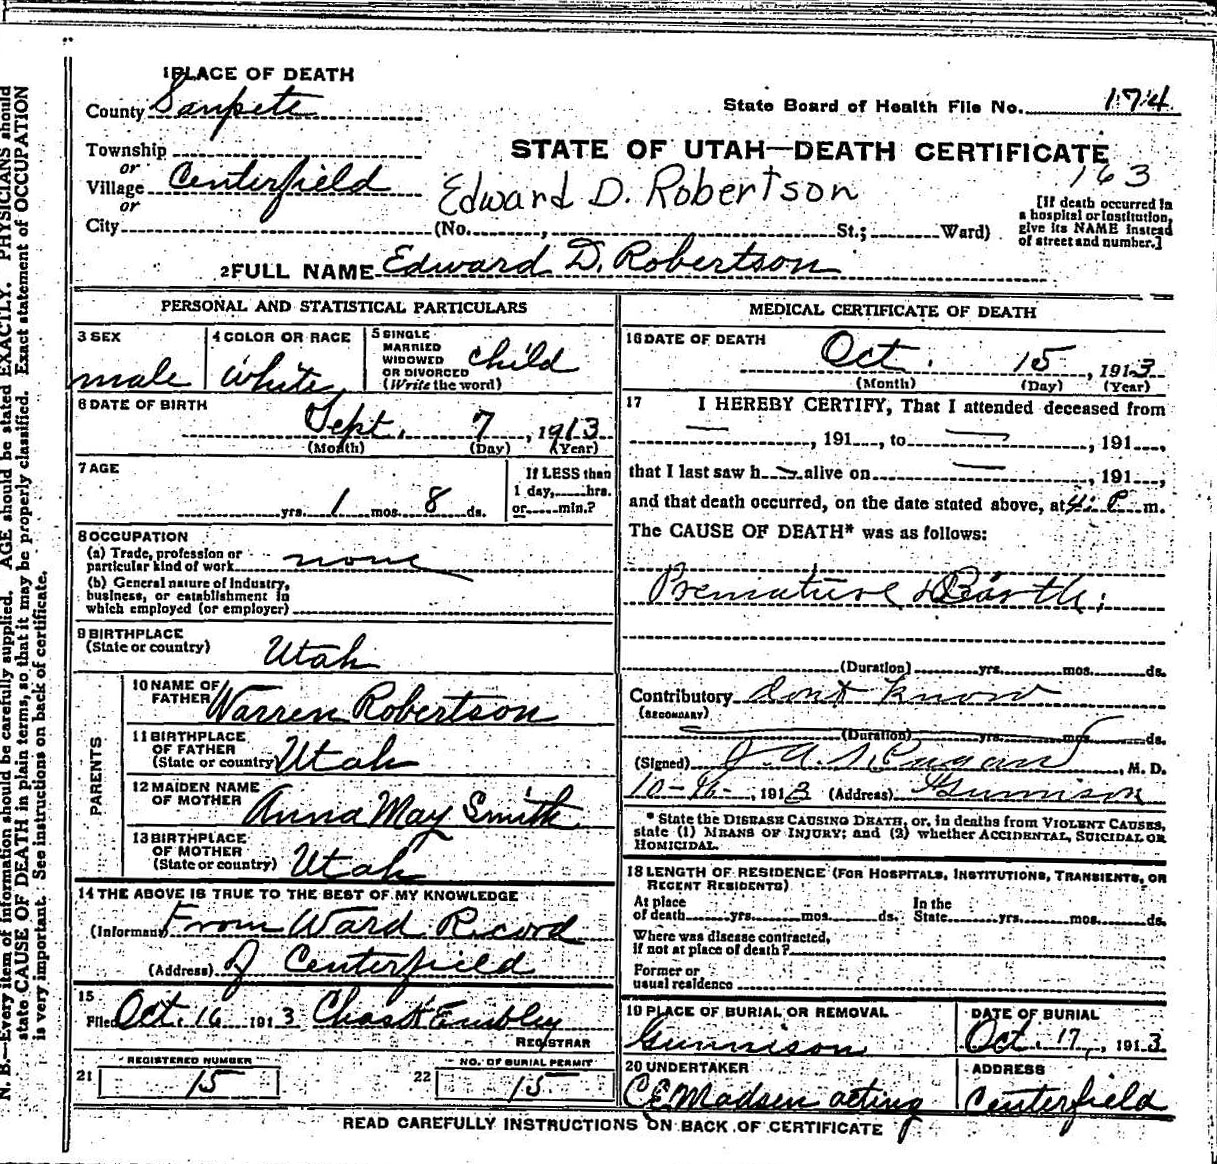 1 PLACE OF DEATH
County Sanpete
State Board of Health File No. 174
Township
or
Village Centerfield
or
City
STATE OF UTAH—DEATH CERTIFICATE
163
Edward D. Robertson
(No. , St.; Ward)
[If death occurred in
a hospital or institution,
give its NAME instead
of street and number.]
2 FULL NAME Edward D. Robertson
PERSONAL AND STATISTICAL PARTICULARS
3 SEX
male
4 COLOR OR RACE
White
5 SINGLE
MARRIED
WIDOWED
OR DIVORCED
(Write the word)
child
6 DATE OF BIRTH
Sept. 7, 1913
(Month) (Day) (Year)
7 AGE
yrs. 1 mos. 8 ds.
If LESS than
1 day, hrs.
or min.?
8 OCCUPATION
(a) Trade, profession or
particular kind of work none
(b) General nature of industry,
business, or establishment in
which employed (or employer)
9 BIRTHPLACE
(State or country) Utah
PARENTS
10 NAME OF
FATHER Warren Robertson
11 BIRTHPLACE
OF FATHER
(State or country) Utah
12 MAIDEN NAME
OF MOTHER Anna May Smith
13 BIRTHPLACE
OF MOTHER
(State or country) Utah
14 THE ABOVE IS TRUE TO THE BEST OF MY KNOWLEDGE
(Informant) From Ward Record
(Address) of Centerfield
15
Filed Oct. 16 1913 Chas
REGISTRAR
REGISTERED NUMBER
21 15
NO. OF BURIAL PERMIT
22 15
MEDICAL CERTIFICATE OF DEATH
16 DATE OF DEATH
Oct. 15, 1913
(Month) (Day) (Year)
17 I HEREBY CERTIFY, That I attended deceased from
— , 191 , to — , 191 ,
that I last saw h alive on — , 191 ,
and that death occurred, on the date stated above, at 4: P. m.
The CAUSE OF DEATH* was as follows:
Premature Birth;
(Duration) yrs. mos. ds.
Contributory dont know
(SECONDARY)
(Duration) yrs. mos. ds.
(Signed) J. A. , M. D.
10-16-, 1913 (Address) Gunnison
* State the DISEASE CAUSING DEATH, or, in deaths from VIOLENT CAUSES,
state (1) MEANS OF INJURY; and (2) whether ACCIDENTAL, SUICIDAL OR
HOMICIDAL.
18 LENGTH OF RESIDENCE (FOR HOSPITALS, INSTITUTIONS, TRANSIENTS, OR
RECENT RESIDENTS)
At place
of death yrs. mos. ds.
In the
State yrs. mos. ds.
Where was disease contracted,
if not at place of death?
Former or
usual residence
19 PLACE OF BURIAL OR REMOVAL
Gunnison
DATE OF BURIAL
Oct. 17, 1913
20 UNDERTAKER
C E Madsen acting
ADDRESS
Centerfield
READ CAREFULLY INSTRUCTIONS ON BACK OF CERTIFICATE
N. B.—Every item of information should be carefully supplied. AGE should be stated EXACTLY. PHYSICIANS should
state CAUSE OF DEATH in plain terms, so that it may be properly classified. Exact statement of OCCUPATION
is very important. See instructions on back of certificate.